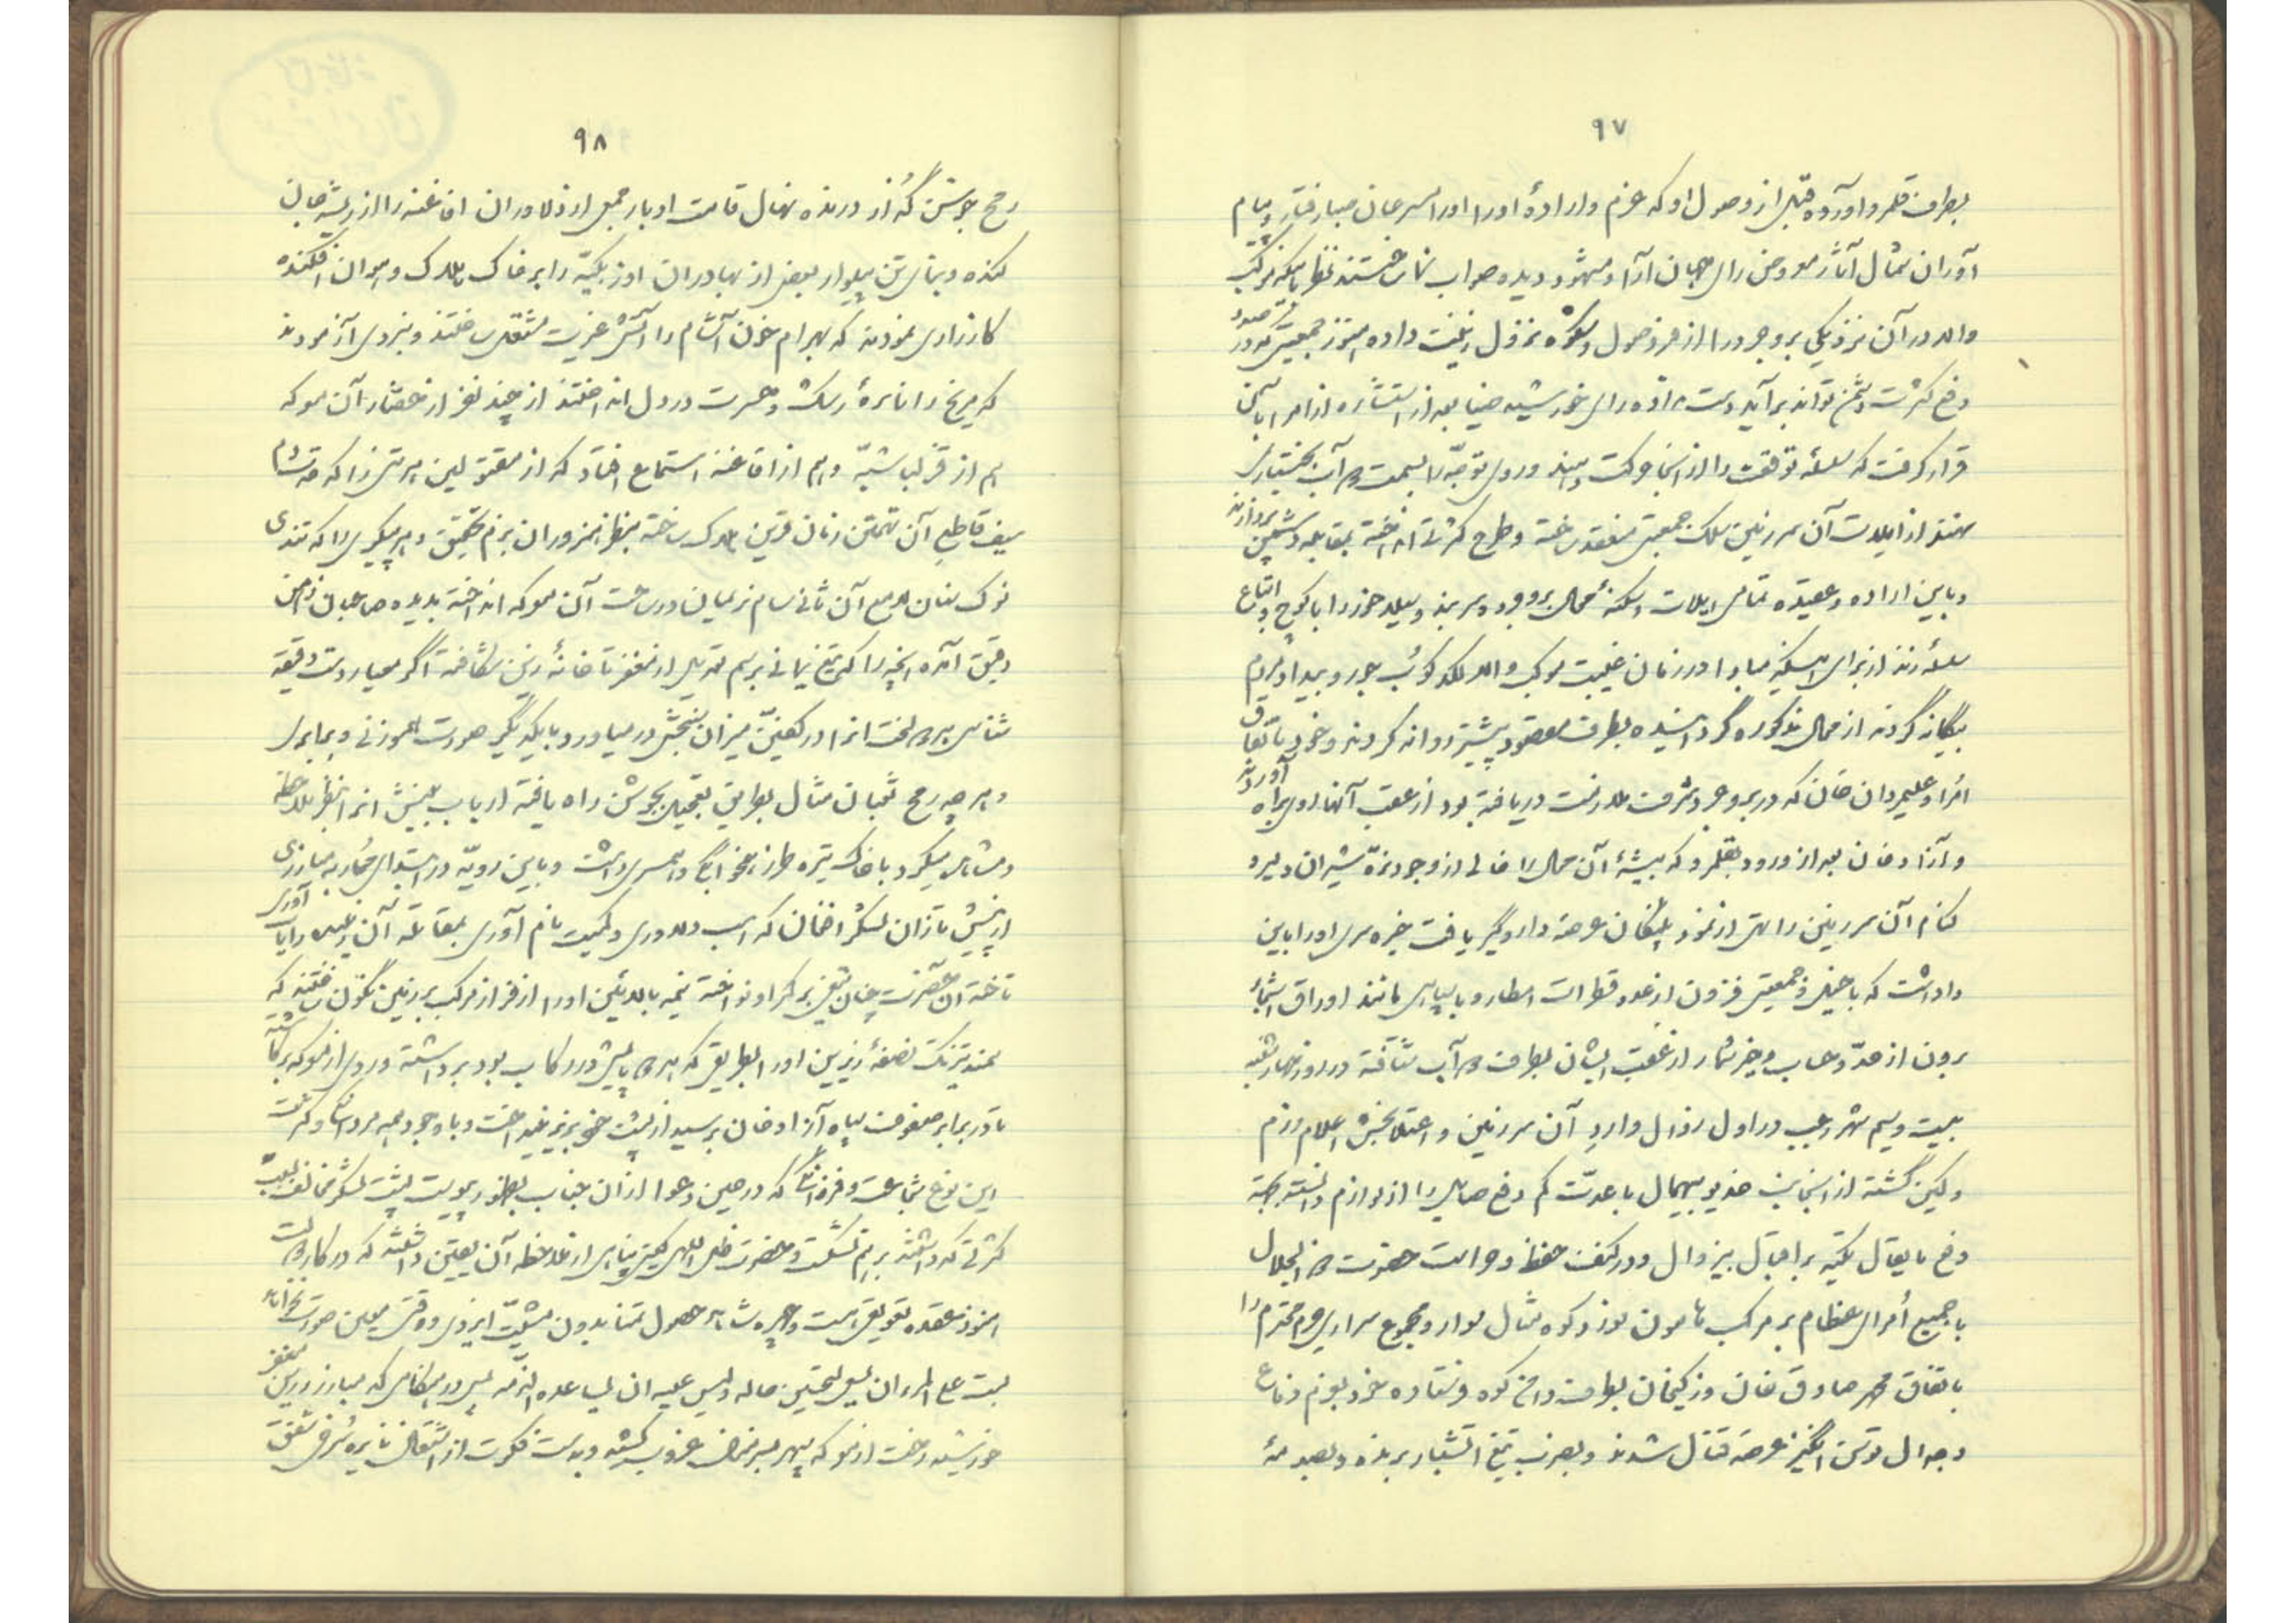 ۹۷
بطرف قلمرو آورده قبل از وصول او که عزم و اراده او را سرعان صبا رفتار و پیام
آوران شمال آثار معروض رای جهان آرا و مشهود دیده صواب نما ساختند
والا در آن نزدیکی بروجرد را از فر وصول و شکوه نزول زینت داده هنوز جمعیتی که در
دفع کثرت دشمن تواند برآید دست نداده رای خورشید ضیا بعد از استشاره از امرا باین
قرار گرفت که سلسله توقف را از اینجا حرکت دهند و روی توجه را بسمت آب بختیاری
نهند از ایلات آن سرزمین سلک جمعیتی منعقد ساخته و طرح کثرتی انداخته بمقابله دشمن پردازند
و باین اراده و عقیده تمامی ایلات و سکنه محال بروجرد و سربند و سیلاخور را با کوچ و اتباع
سلسله زند از برای اینکه مبادا در زمان غیبت موکب والا لگدکوب جور و بیداد مردم
بیگانه گردند از محال مذکوره گردانیده بطرف مقصود پیشتر روانه کردند و خود باتفاق
امرا و علیمردان خان که در بروجرد شرف ملازمت دریافته بود از عقب آنها روی براه آوردند
و آزاد خان بعد از ورود بقلمرو که بیشه آن محال را خالی از وجود نره شیران دلیر و
کنام آن سرزمین را تهی از نمود پلنگان عرصه دار و گیر یافت خیره سری او را باین
واداشت که با خیل و جمعیتی فزون از عدد قطرات امطار و با سپاهی مانند اوراق اشجار
برون از حد و حساب و خیز شمار از عقب ایشان بطرف آب شتافته در روز چهارشنبه
بیست و سیم شهر رجب در اول زوال وارد آن سرزمین و اعتلا بخش اعلام رزم
و کین گشته از اینجانب خدیو بیهمال با عدت کم دفع صایل را از لوازم دانسته بجهة
دفع ما یقال تکیه بر اقبال بیزوال و در کنف حفظ و حراست حضرت ذوالجلال
با جمیع امرای عظام بر مرکب هامون نورد کوه مثال سوار و مجموع سراری حرم محترم را
باتفاق محمد صادق خان و زکیخان بطرف دامن کوه فرستاده خود بعزم دفاع
و جدال توسن انگیز عرصه قتال شدند و بضرب تیغ آتشبار برنده و بصدمه
۹۸
رمح جوشن گذار درنده نهال قامت ادبار جمعی از دلاوران افاغنه را از ریشه جان
کنده و بنای تن پیلوار بعضی از بهادران اوزبکیه را بر خاک هلاک و هوان افکنده
کارزاری نمودند که بهرام خون آشام را آتش غیرت مشتعل ساختند و نبردی آزمودند
که مریخ را نایره رشک و حسرت در دل انداختند از چند نفر از حضار آن معرکه
هم از قزلباشیه و هم از افاغنه استماع افتاد که از مقتولین هر تنی را که
سیف قاطع آن تهمتن زمان قرین هلاک ساخته بنظر هنروران بزم تحقیق و هر پیکری را که تندی
نوک سنان لامع آن ثانی سام نریمان در ساحت آن معرکه انداخته بدیده صاحبان ذهن
دقیق آمده آنچه را که تیغ یمانی برسم تعدیل از مغفر تا خانه زین شکافته اگر معیار دست دقیقه
شناسی هر دو لخت آنرا در کفتین میزان سنجش درمیاورد با یکدیگر صورت هموزنی و برابری
و هر چه رمح ثعبان مثال بطریق تعجیل بجوشن راه یافته ارباب بینش آنرا بنظر ملاحظه
و مشاهده میکرد با خاک تیره طراز همسری داشت و باین رویه در ابتدای محاربه مبارزی
از پیش تازان لشکر افغان که اسب دلاوری و کمیت نام آوری بمقابله آن زیبنده رایات آوری
تاخته آنحضرت چنان تیغی بر کمر او نواخته نیمه بالائین او را از فراز مرکب بر زمین نگون ساختند که
سمند تیزتک نصفه زیرین او را بطریقی که هر دو پایش در رکاب بود برداشته و روی از معرکه
تا در برابر صفوف سپاه آزاد خان برسید از پشت خود بزیر نینداخت و با وجود همه مردانگی
این نوع شجاعت و فرزانگی که در حین دعوا از آن جناب بظهور پیوست پشت لشکر مخالف بسبب
کثرتی که داشتند برهم نشکست و حضرت ظل اللهی گیتی پناهی از ملاحظه آن بیقین دانستند که در کار
هنوز عقده تعویق است و چهره شاهد حصول تمنا بدون مشیت ایزدی و وقت معین صورت
لیست علی المرء ان یسعی لتحسین حاله و لیس علیه ان یساعده الدهر پس در هنگامی که مبارز زرین مغفر
خورشید رخت از معرکه سپهر بسر منزل غروب کشید و بدست فکرت از اشتعال نایره شرفی شفق